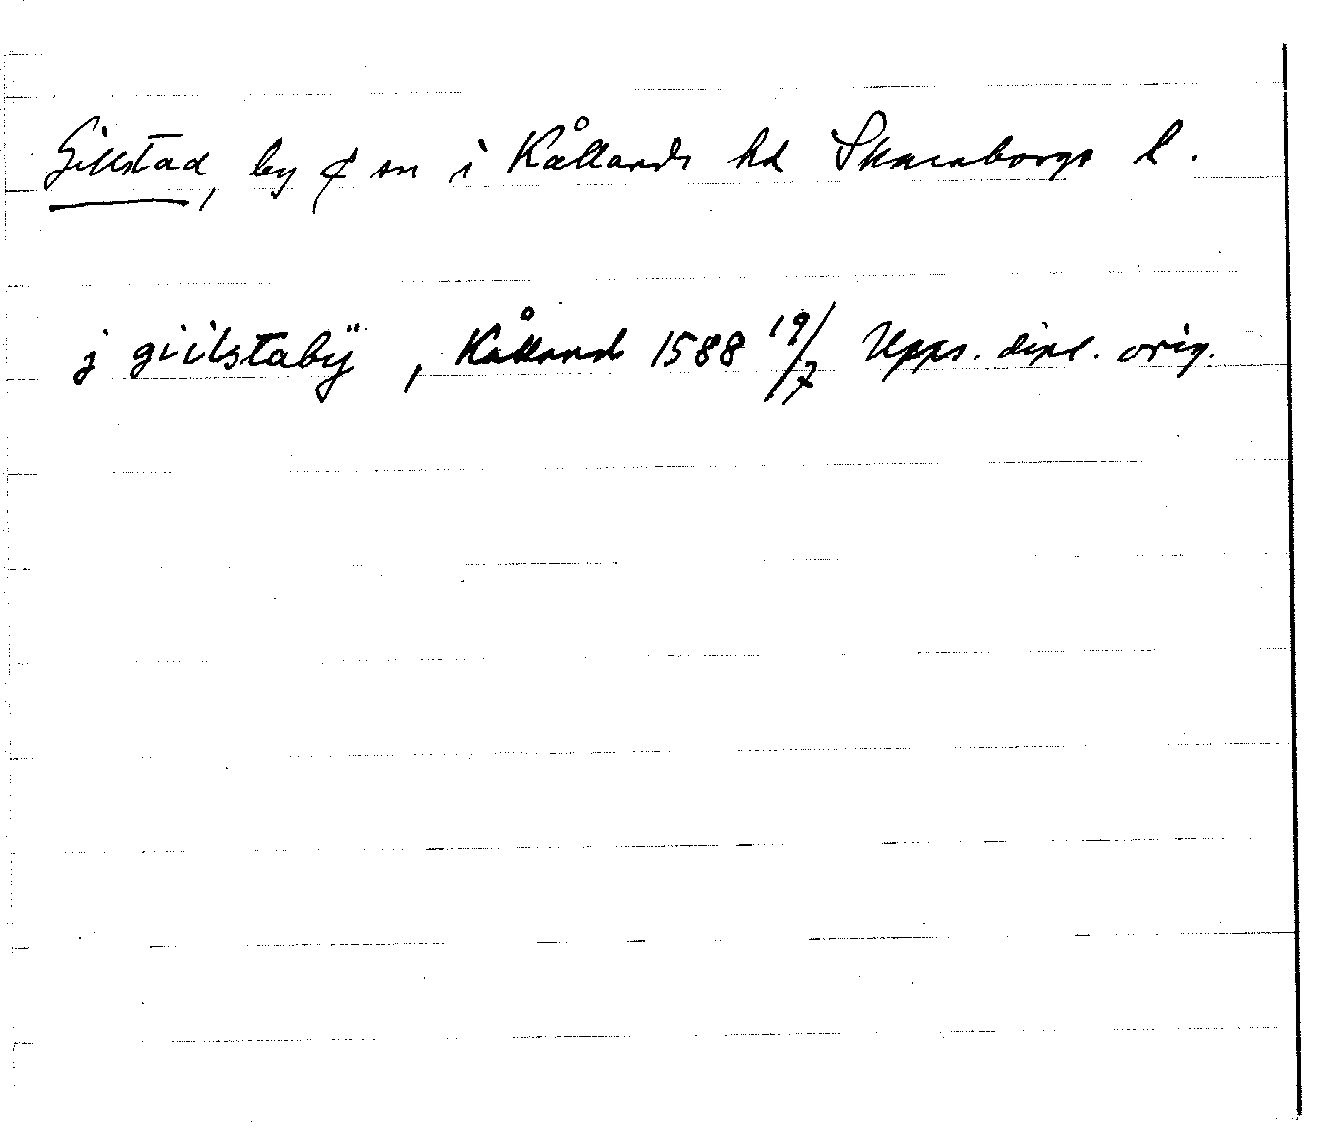 Gillstad, by & sn i Kållands hd Skaraborgs l.
j giilstabÿ, Kålland 1588 19/7 Upps. dipl. orig.